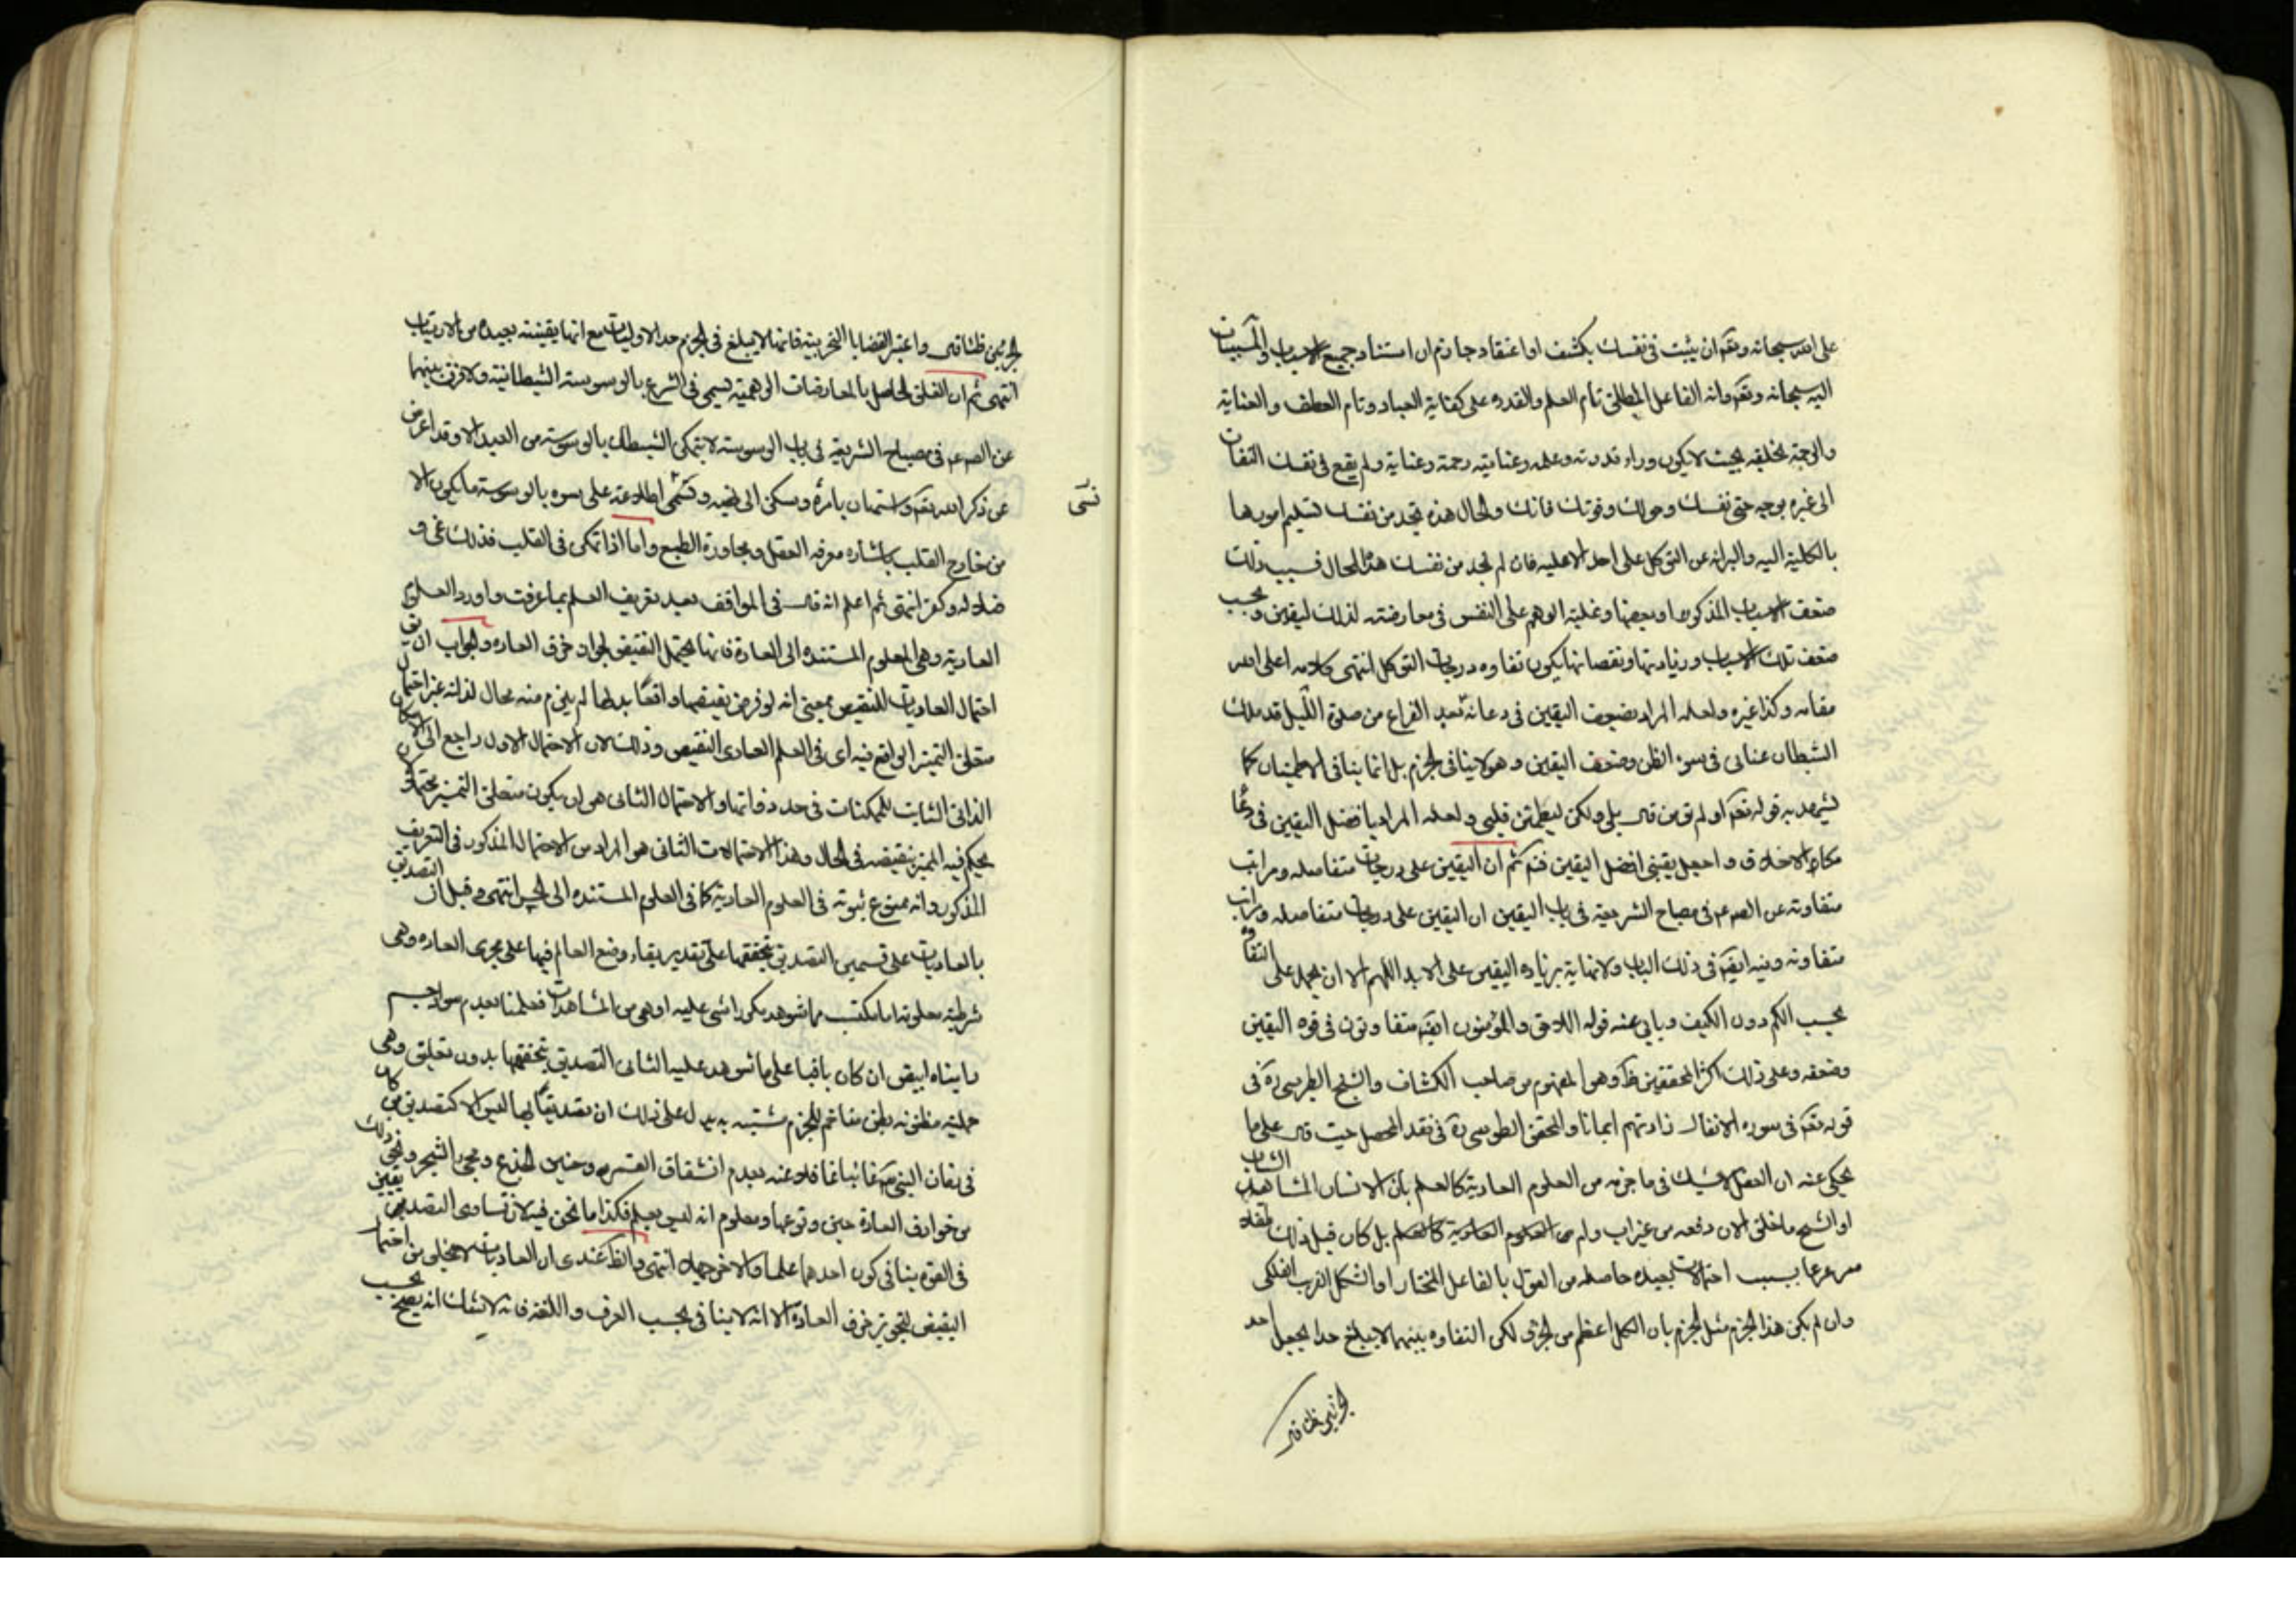 على الله سبحانه وتعم ان يثبت في نفسك بكشف او اعتقاد جازم ان استناد جميع الاسباب والمسببات
اليه سبحانه وتعم وانه الفاعل المطلق تام العلم والقدره على كفاية العباد وتام العطف والعناية
والرحمة بخلقه بحيث لا يكون وراء قدرته وعلمه وعنايته رحمة وعناية ولم يقع في نفسك التفات
الى غيره بوجه حتى نفسك وحولك وقوتك فانك والحال هذه تجد من نفسك تسليم امورها
بالكلية اليه والبراءة عن التوكل على احد الا عليه فان لم تجد من نفسك هذا الحال فسبب ذلك
ضعف الاسباب المذكوره او بعضها وغلبة الوهم على النفس في معارضته لذلك اليقين وبحسب
ضعف تلك الاسباب وزيادتها ونقصانها يكون تفاوه درجات التوكل انتهى كلامه اعلى الله
مقامه وكذا غيره ولعله المراد بضعف اليقين في دعائه بعد الفراغ من صلوة الليل قد ملك
الشيطان عناني في سوء الظن وضعف اليقين وهو لا ينافي الجزم بل انما ينافي الاطمينان كما
يشهد به قوله تعم اولم تؤمن قال بلى ولكن ليطمئن قلبي ولعله المراد بافضل اليقين في دعا
مكارم الاخلاق واجعل يقيني افضل اليقين ثم ان اليقين على درجات متفاضله ومراتب
متفاوته عن الصم في مصباح الشريعة في باب اليقين ان اليقين على درجات متفاضله ومراتب
متفاوته وفيه ايضم في ذلك الباب ولا نهاية بزياده اليقين على الابد اللهم الا ان يحمل على التفاوه
بحسب الكم دون الكيف ويابى عنه قوله اللاحق والمؤمنون ايضم متفاوتون في قوه اليقين
وضعفه وعلى ذلك اكثر المحققين وهو المفهوم من صاحب الكشاف والشيخ الطبرسي ره في
قوله تعم في سوره الانفال زادتهم ايمانا والمحقق الطوسي ره في نقد المحصل حيث قال على ما
يحكى عنه ان العقل لا يشك في ما جزمه من العلوم العادية كالعلم بان الانسان المشاهد الشاب
او الشيخ ما خلق الان دفعه من غير اب وام بل كان قبل ذلك طفلا
مترعرعا بسبب احتمالات بعيده حاصله من القول بالفاعل المختار او الشكل الغريب الفلكي
وان لم يكن هذا الجزم مثل الجزم بان الكل اعظم من الجزء لكن التفاوه بينهما لا يبلغ حدا يجعل احد
الجزمين ظنا قال
الجزمين ظنا قال واعتبر القضايا التجربية فانها لا يبلغ في الجزم حد الاوليات مع انها يقينية بعيده من الارتياب
انتهى ثم ان القلق الحاصل بالمعارضات الوهمية يسمى في الشرع بالوسوسة الشيطانية ولا فرق بينهما
عن الصم في مصباح الشريعة في باب الوسوسة لا يتمكن الشيطان بالوسوسة من العبد الا وقد اعرض
عن ذكر الله تعم واستهان بامره وسكن الى نهيه ونسى اطلاعه على سره بالوسوسة ما يكون الا
نسى
من خارج القلب باشاره معرفه العقل ومجاورة الطبع واما اذا تمكن في القلب فذلك غي و
ضلاله وكفر انتهى ثم اعلم انه قال في المواقف بعد تعريف العلم بما عرفت واورد العلوم
العادية وهي العلوم المستنده الى العادة فانها يحتمل النقيض لجواز خرق العاده والجواب ان يق
احتمال العاديات للنقيض بمعنى انه لو فرض نقيضها واقعا بدلها لم يلزم منه محال لذاته غير احتمال
متعلق التميز الواقع فيه اي في العلم العادي النقيض وذلك لان الاحتمال الاول راجع الى الامكان
الذاتي الثابت للممكنات في حد ذواتها والاحتمال الثاني هو ان يكون متعلق التميز محتملا لان
يحكم فيه المميز بنقيضه في الحال وهذا الاحتمالات الثاني هو المراد من الاحتمال المذكور في التعريف
المذكور وانه ممنوع ثبوته في العلوم العادية كما في العلوم المستنده الى الحس انتهى وقيل ان التصديق
بالعاديات على قسمين التصديق بتحققها على تقدير بقاء وضع العالم فيها على مجرى العاده وهي
شرطية معلومة اما مكتسبه مما شوهد بكرا شي عليه او هي من المشاهدات فعلمنا بعدم سواد جسم
رايناه ابيض ان كان باقيا على ما شوهد عليه الثاني التصديق بتحققها بدون تعليق وهي
حملية مظنونه بظن متاخم للجزم مشتبه به يدل على ذلك ان تصديقنا بها ليس الا كتصديق من كان
في زمان النبي غائبا غافلا عنه بعدم انشقاق القمر وحنين الجذع ومجئ الشجر ونحو ذلك
من خوارق العادة حين وقوعها ومعلوم انه ليس بعلم فكذا ما نحن فيه لان تساوي التصديقين
في القوة ينافي كون احدهما علما والاخر جهلا انتهى والظ عندي ان العاديات لا يخلو من احتمال
النقيض لتجويز خرق العادة الا انه لا ينافي بحسب العرف واللغة فانه لا شك انه يصح بحسب